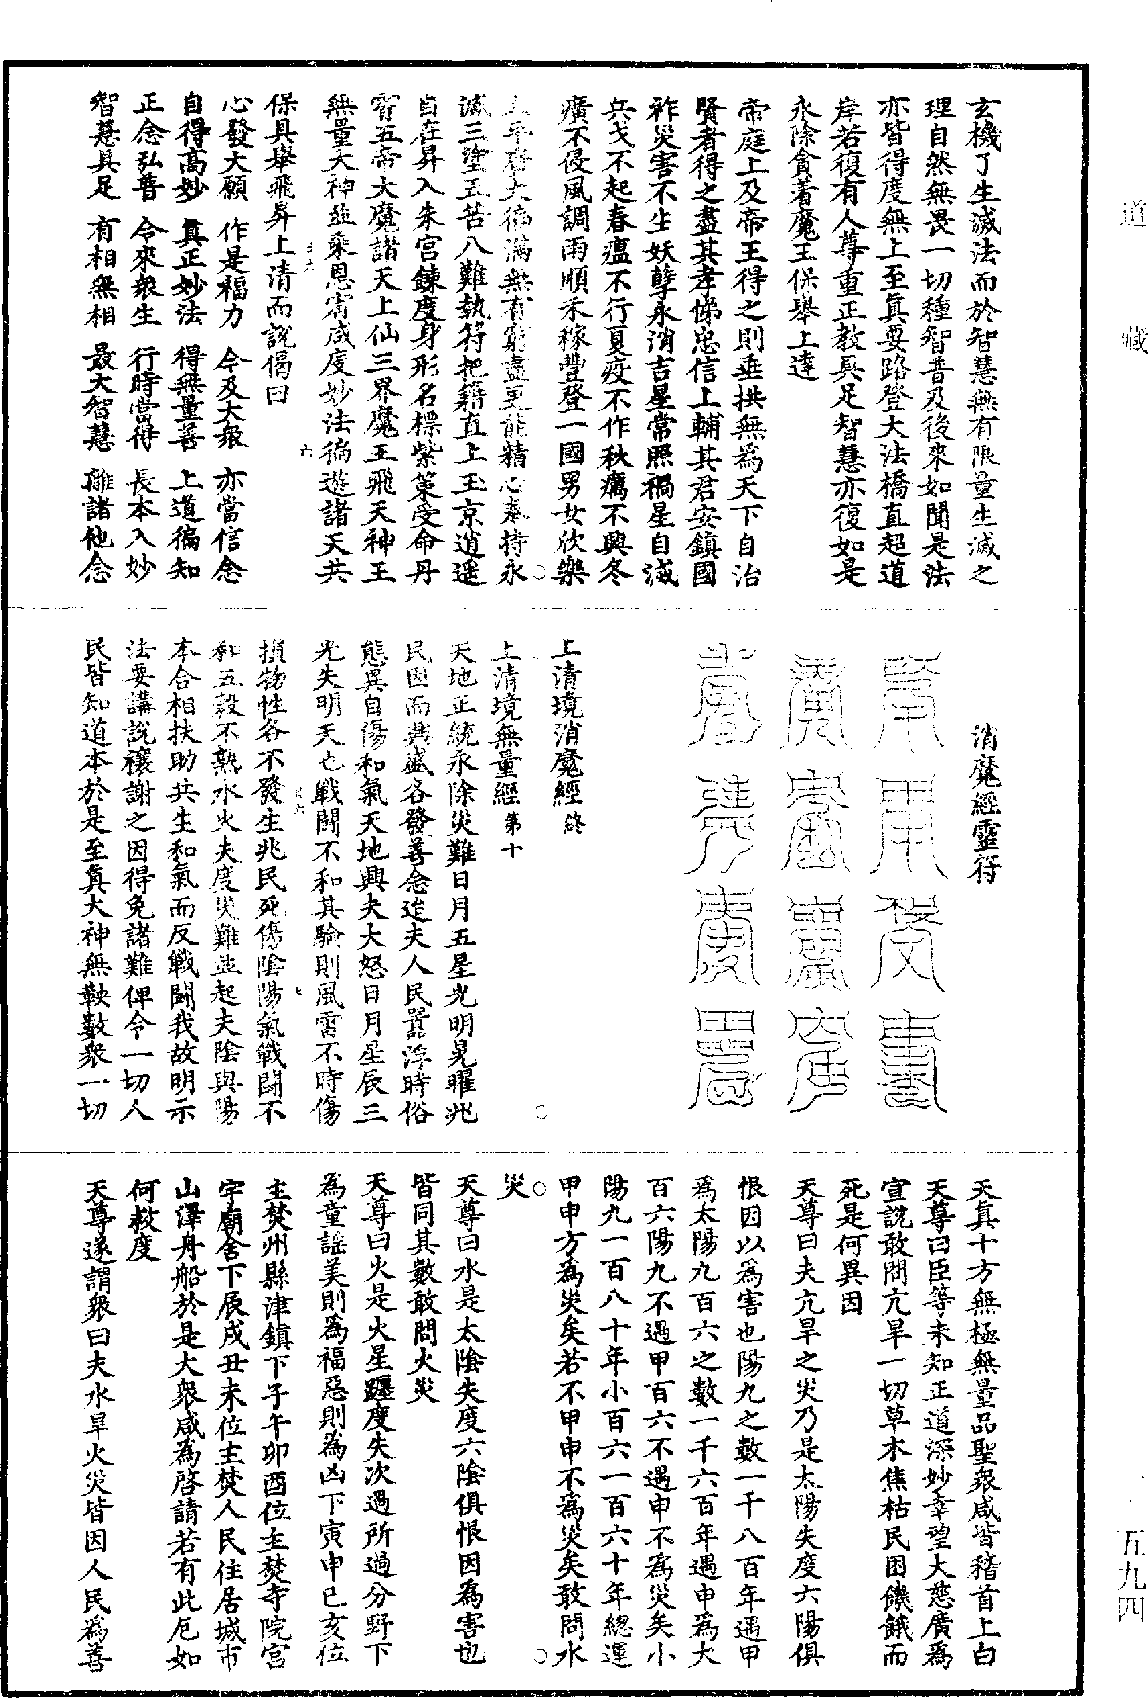 道藏
玄機了生滅法而於智慧無有限量生滅之
理自然無畏一切種智普及後來如聞是法
亦皆得度無上至真要路登大法橋直超道
岸若復有人尊重正教具足智慧亦復如是
永除貪著魔王保舉上達
帝庭上及帝王得之則垂拱無為天下自治
賢者得之盡其孝悌忠信上輔其君安鎮國
祚災害不生妖孽永消吉星常照禍星自滅
兵戈不起春瘟不行夏疫不作秋癘不興冬
癀不侵風調雨順禾稼豐登一國男女欣樂
太平齊大福滿無有窮盡更能精心奉持永
滅三塗五苦八難執符把籍直上玉京逍遥
自在昇入朱宮鍊度身形名標紫策受命丹
霄五帝大魔諸天上仙三界魔王飛天神王
無量大神並乘恩霈咸度妙法徧遊諸天共
保具舉飛昇上清而說偈曰
心發大願 作是福力 今及大衆 亦當信念
自得高妙 真正妙法 得無量善 上道徧知
正念弘普 令來衆生 行時當得 長本入妙
智慧具足 有相無相 最大智慧 離諸他念
消魔經靈符
上清境消魔經終
上清境無量經第十
天地正統永除災難日月五星光明晃曜兆
民因而興盛各發善念迨夫人民囂浮時俗
態異自傷和氣天地興夫大怒日月星辰三
光失明天亡戰鬪不和其驗則風雷不時傷
損物性各不發生兆民死傷陰陽氣戰鬪不
和五穀不熟水火夫度災難並起夫陰與陽
本合相扶助共生和氣而反戰鬪我故明示
法要講說禳謝之因得免諸難俾令一切人
民皆知道本於是至真大神無鞅數衆一切
天真十方無極無量品聖衆咸皆稽首上白
天尊曰臣等未知正道深妙幸望大慈廣為
宣說敢問亢旱一切草木焦枯民困饑餓而
死是何異因
天尊曰夫亢旱之災乃是太陽失度六陽俱
恨因以為害也陽九之數一千八百年遇甲
為太陽九百六之數一千六百年遇申為大
百六陽九不遇甲百六不遇申不為災矣小
陽九一百八十年小百六一百六十年總運
甲申方為災矣若不甲申不為災矣敢問水
災
天尊曰水是太陰失度六陰俱恨因為害也
皆同其數敢問火災
天尊曰火是火星躔度失次過所過分野下
為童謡美則為福惡則為凶下寅申巳亥位
主焚州縣津鎮下子午卯酉位主焚寺院宮
宇廟舍下辰戌丑未位主焚人民住居城市
山澤舟船於是大衆咸為啓請若有此厄如
何救度
天尊遂謂衆曰夫水旱火災皆因人民為善
五九四